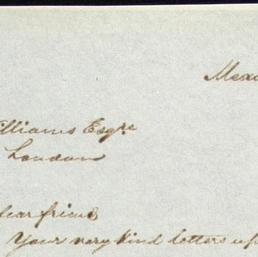 Mexi
illiams Esqre
London
ear friend
Your very kind letters up